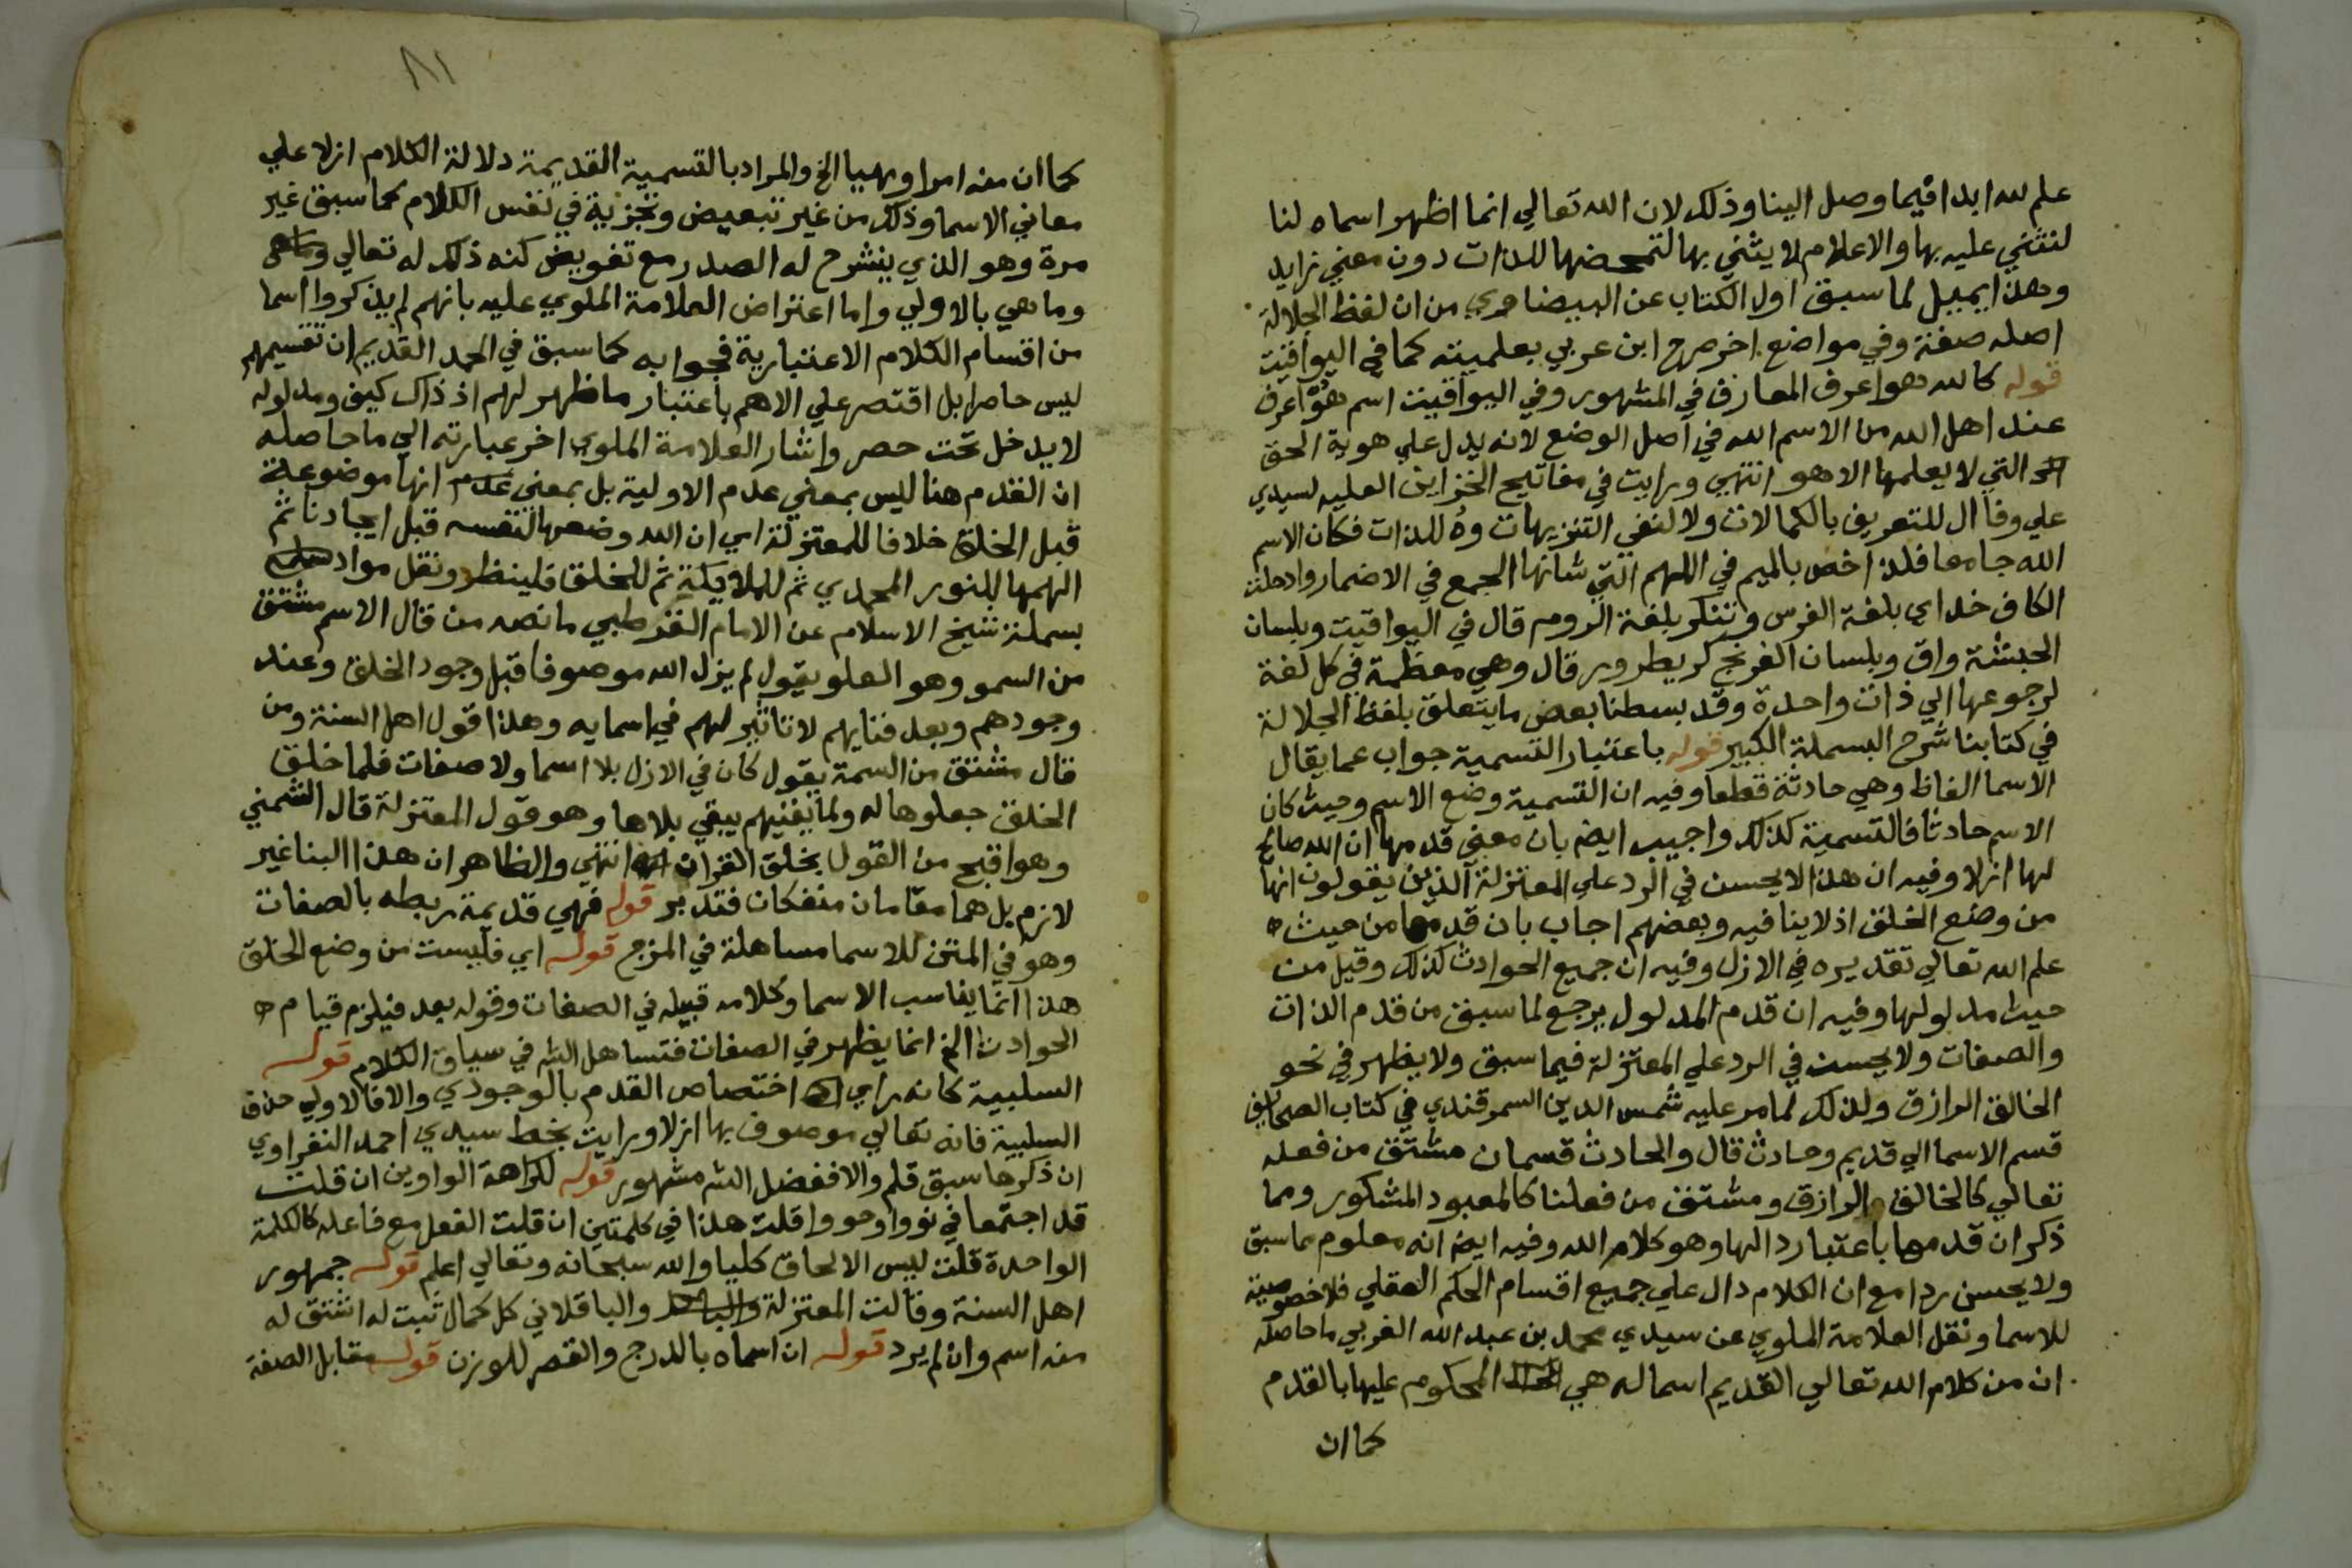 علم لله ابدا فيما وصل الينا وذلك لان الله تعالي انما اظهر اسماه لنا
لنثني عليه بها والاعلام لا يثني بها لتمحضها للذات دون معني زايد
وهذا يميل لما سبق اول الكتاب عن البيضاوي من ان لفظ الجلالة
اصله صفة وفي مواضع اخر صرح ابن عربي بعلميته كما في اليواقيت
قوله كالله هو اعرف المعارف في المشهور وفي اليواقيت اسم هو اعرف
عند اهل الله من الاسم الله في اصل الوضع لانه يدل علي هوية الحق
التي لا يعلمها الا هو انتهي ورايت في مفاتيح الخزاين العليه لسيدي
علي وفا ال للتعريف بالكمالات ولا لنفي التنزيهات وهُ للذات فكان الاسم
الله جامعا فلذا خص بالميم في اللهم التي شانها الجمع في الاضمار وادخلت
الكاف خداي بلغة الفرس وتنكر بلغة الروم قال في اليواقيت وبلسان
الحبشة واق وبلسان الفرنج كريطرور قال وهي معظمة في كل لغة
لرجوعها الي ذات واحدة وقد بسطنا بعض ما يتعلق بلفظ الجلالة
في كتابنا شرح البسملة الكبير قوله باعتبار التسمية جواب عما يقال
الاسما الفاظ وهي حادثة قطعا وفيه ان التسمية وضع الاسم وحيث كان
الاسم حادثا فالتسمية كذلك واجيب ايض بان معني قدمها ان الله صالح
لها ازلا وفيه ان هذا لا يحسن في الرد علي المعتزلة الذين يقولون انها
من وضع الخلق اذ لا ينافيه وبعضهم اجاب بان قدمها من حيث
علم الله تعالي تقديره في الازل وفيه ان جميع الحوادث كذلك وقيل من
حيث مدلولها وفيه ان قدم المدلول يرجع لما سبق من قدم الذات
والصفات ولا يحسن في الرد علي المعتزلة فيما سبق ولا يظهر في نحو
الخالق الرازق ولذلك لما مر عليه شمس الدين السمرقندي في كتاب الصحايف
قسم الاسما الي قديم وحادث قال والحادث قسمان مشتق من فعله
تعالي كالخالق والرازق ومشتق من فعلنا كالمعبود المشكور ومما
ذكر ان قدمها باعتبار دالها وهو كلام الله وفيه ايض انه معلوم مما سبق
ولا يحسن ردا مع ان الكلام دال علي جميع اقسام الحكم العقلي فلا خصوصية
للاسما ونقل العلامة الملوي عن سيدي محمد بن عبد الله الغربي ما حاصله
ان من كلام الله تعالي القديم اسما له هي المحكوم عليها بالقدم
كما ان
٨١
كما ان منه امرا ونهيا الخ والمراد بالتسمية القديمة دلالة الكلام ازلا علي
معاني الاسما وذلك من غير تبعيض وتجزية في نفس الكلام كما سبق غير
مرة وهو الذي ينشرح له الصدر مع تفويض كنه ذلك له تعالي
وما هي بالاولي واما اعتراض العلامة الملوي عليه بانهم لم يذكروا اسما
من اقسام الكلام الاعتبارية فجوابه كما سبق في الحمد القديم ان تقسيمهم
ليس حاصرا بل اقتصر علي الاهم باعتبار ما ظهر لهم اذ ذاك كيف ومدلوله
لا يدخل تحت حصر واشار العلامة الملوي اخر عبارته الي ما حاصله
ان القدم هنا ليس بمعني عدم الاولية بل بمعني عدم انها موضوعة
قبل الخلق خلافا للمعتزلة اي ان الله وضعها لنفسه قبل ايجادنا ثم
الهمها للنور المحمدي ثم للملايكة ثم للخلق فلينظر ونقل مواد
بسملة شيخ الاسلام عن الامام القرطبي ما نصه من قال الاسم مشتق
من السمو وهو العلو يقول لم يزل الله موصوفا قبل وجود الخلق وعند
وجودهم وبعد فنايهم لا تاثير لهم في اسمايه وهذا قول اهل السنة ومن
قال مشتق من السمة يقول كان في الازل بلا اسما ولا صفات فلما خلق
الخلق جعلوها له ولما يفنيهم يبقي بلاها وهو قول المعتزلة قال الشمني
وهو اقبح من القول بخلق القران انتهي والظاهر ان هذا البنا غير
لازم بل هما مقامان منفكان فتدبر قوله فهي قديمة ربطه بالصفات
وهو في المتن للاسما مساهلة في المزج قوله اي فليست من وضع الخلق
هذا انما يناسب الاسما وكلامه قبيله في الصفات وقوله بعد فيلزم قيام
الحوادث الخ انما يظهر في الصفات فتساهل الش في سياق الكلام قوله
السلبية كانه راي اختصاص القدم بالوجودي والا فالاولي حذف
السلبية فانه تعالي موصوف بها ازلا ورايت بخط سيدي احمد النفراوي
ان ذكرها سبق قلم والا ففضل الش مشهور قوله لكراهة الواوين ان قلت
قد اجتمعا في نووا وحووا قلت هذا في كلمتين ان قلت الفعل مع فاعله كالكلمة
الواحدة قلت ليس الالحاق كليا والله سبحانه وتعالي اعلم قوله جمهور
اهل السنة وقالت المعتزلة والباقلاني كل كمال ثبت له اشتق له
منه اسم وان لم يرد قوله ان اسماه بالدرج والقصر للوزن قوله مقابل الصفة